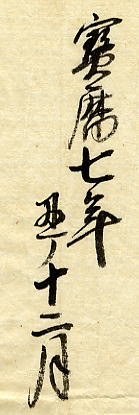 寳暦七年
丑ノ十二月